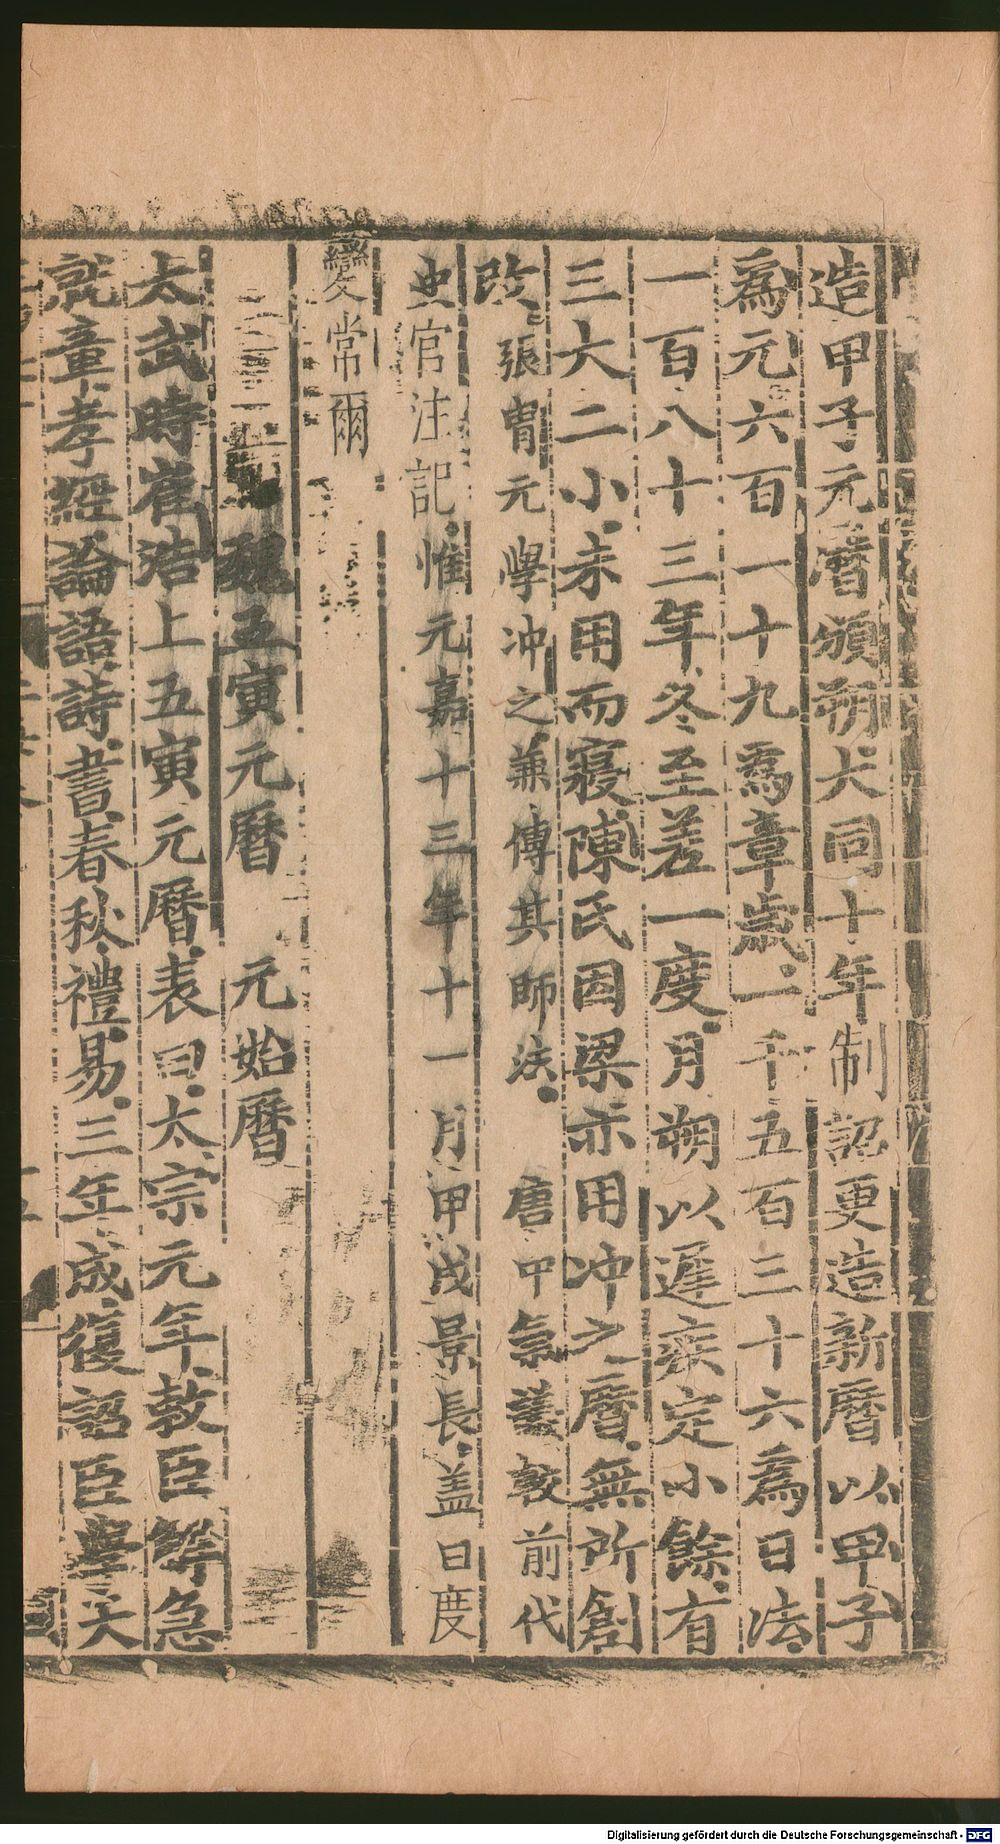 造甲子元曆頒朔大同十年制詔更造新曆以甲子
爲元六百一十九爲章歲一千五百三十六爲日法
一百八十三年冬至差一度月朔以遲疾定小餘有
三大二小未用而寢陳氏因梁亦用冲之曆無所創
改張胄元學冲之兼傳其師法 唐中氣議較前代
史官注記惟元嘉十三年十一月甲戌景長蓋日度
變常爾
魏五寅元曆 元始曆
太武時崔浩上五寅元曆表曰太宗元年敕臣解急
就章孝經論語詩書春秋禮易三年成復詔臣學天
Digitalisierung gefördert durch die Deutsche Forschungsgemeinschaft - DFG